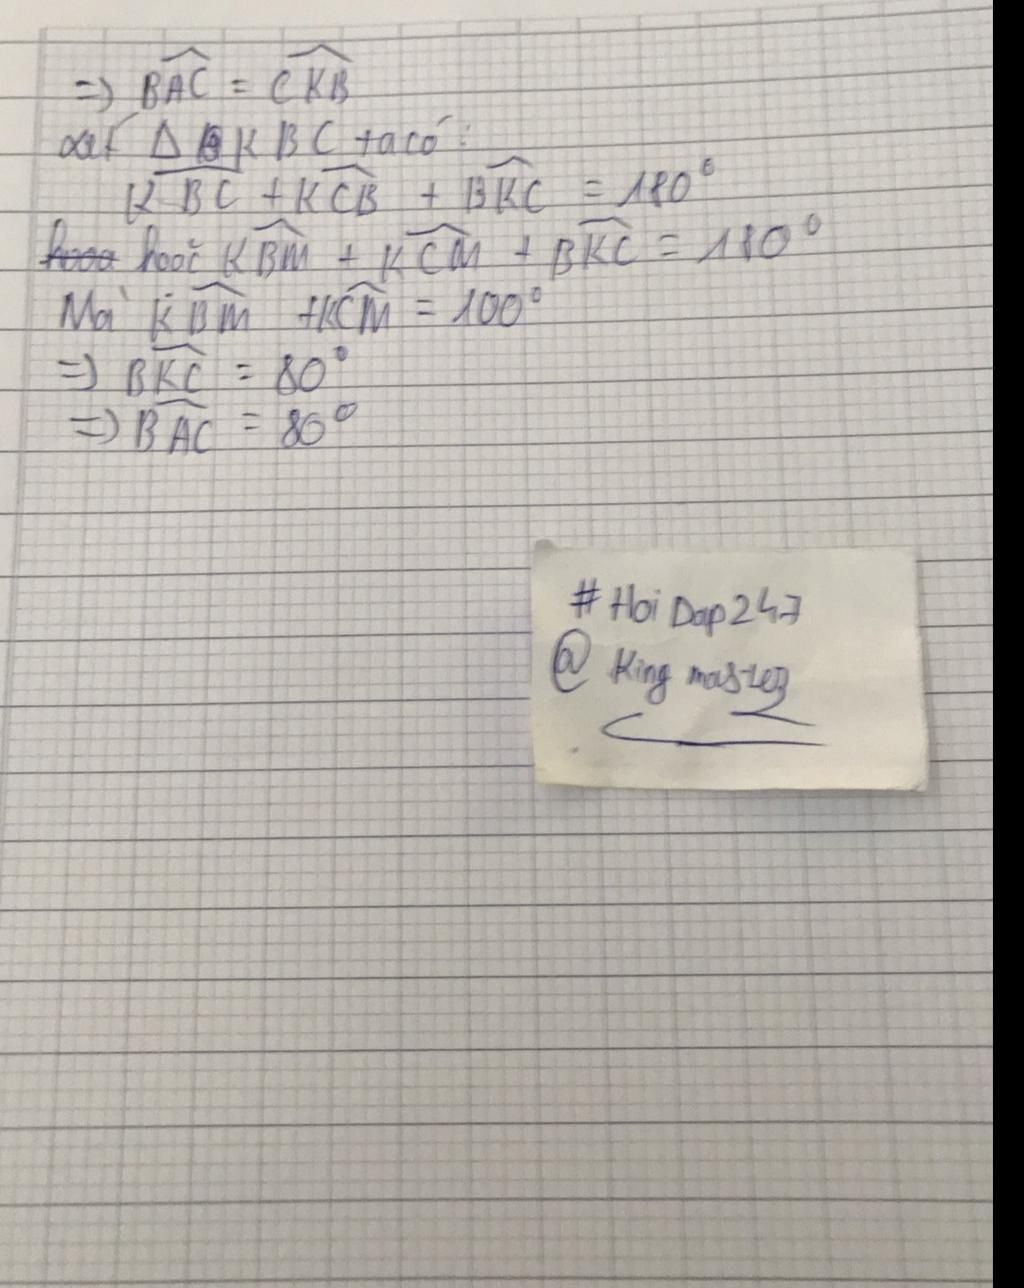 => BAC = CKB
xét Δ KBC ta có:
KBC + KCB + BKC = 180°
hoặc KBM + KCM + BKC = 180°
Mà KBM + KCM = 100°
=> BKC = 80°
=> BAC = 80°
# HoiDap247
@ King master